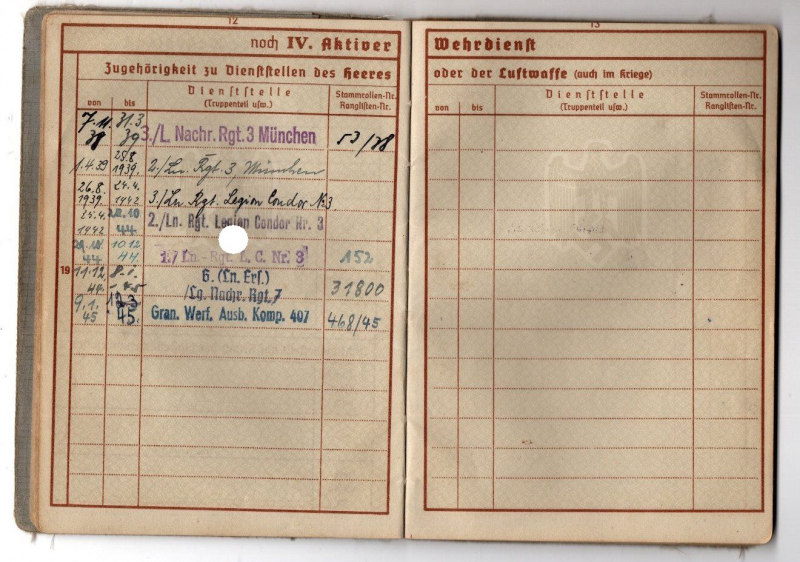 12
noch IV. Aktiver
Zugehörigkeit zu Dienststellen des Heeres
von
bis
Dienststelle
(Truppenteil usw.)
Stammrollen-Nr.
Ranglisten-Nr.
7.11. 31.3
38 39 3./L. Nachr. Rgt. 3 München 53/38
25.8.
1.4.39 1939. 2./Ln. Rgt. 3, München
26.8. 24.4.
1939. 1942 3./Ln. Rgt. Legion Condor No 3
25.4. 10
1942 44 2./Ln. Rgt. Legion Condor Nr. 3
10.12
44 44. Ln.-Rgt. L. C. Nr. 3 152
19
11.12 6. (Ln. Ers.)
44. 45 /Lg. Nachr. Rgt. 7 31800
9.1. 3
45 45. Gran. Werf. Ausb. Komp. 407 468/45
13
Wehrdienst
oder der Luftwaffe (auch im Kriege)
von
bis
Dienststelle
(Truppenteil usw.)
Stammrollen-Nr.
Ranglisten-Nr.